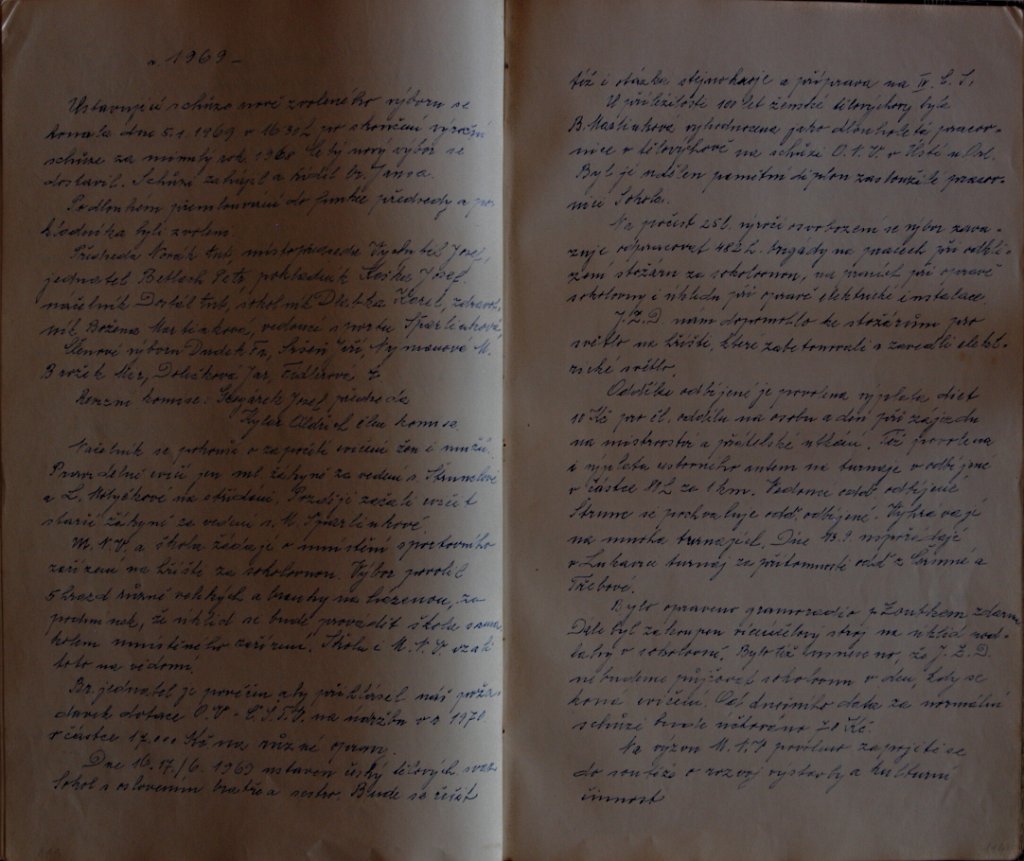 - 1969 -
Ustavující schůze nově zvoleného výboru se
konala dne 5.1.1969 v 16 30 h po skončení výroční
schůze za minulý rok 1968 Celý nový výbor se
dostavil. Schůzi zahájil a řídil br. Jansa.
Po dlouhém přemlouvání do funkce předsedy a po-
kladníka byli zvoleni.
Předseda Novák Ant, místopředseda Vychytil Josef,
jednatel Betlach Petr, pokladník Josef.
náčelník Dostál Ant, sokolník Karel, zdravot-
ník Božena Martinková, vedoucí sportu Špærlinková
Členové výboru Dudek Fr, Jiří, Nymonová M.
Brožek Mir, Jar, Fiedlerová
Revizní komise: Josef předseda
Kylar Oldřich člen komise
Náčelník se pokouší o započetí cvičení žen i mužů.
Pravidelně cvičí jen ml. žákyně za vedení s. Štrumclové
a L. Motyčkové na střídání. Později začali cvičit
starší žákyně za vedení s. M. Špærlinkové.
M.N.V. a škola žádají o umístění sportovního
zařízení na hřiště za sokolovnou. Výbor povolil
5 hnízd různě velkých a branky na házenou, za
podmínek, že úklid se bude provádět škola sama
kolem umístěného zařízení. Škola i M.N.V. vzali
toto na vědomí.
Br. jednatel je pověřen aby přihlásil náš poža-
davek dotace O.V - Č.S.T.V. na údržbu v r 1970
v částce 17.000 Kčs na různé opravy.
Dne 16.17./6. 1969 ustaven český tělových. svaz
Sokol s oslovením bratře a sestro. Bude se řešit
též i otázka stejnokroje a příprava na IV. C. S.
U příležitosti 100 let ženské tělovýchovy byla
B. Martinková vyhodnocena jako dlouholetá pracov-
nice v tělovýchově na schůzi O.N.V. v Ústí n Orl.
Byl jí udělen pamětní diplom zasloužilé pracov-
nici Sokola.
Na počest 25 l. výročí osvobození se výbor zava-
zuje odpracovat 482 h. brigády na pracech při
zem stožárů za sokolovnou, na pomoc při opravě
sokolovny i úklidu při opravě elektrické instalace.
J.Z.D. nám dopomohlo ke stožárům pro
světlo na hřiště, které zabetonovali a zavedli elekt-
rické světlo.
Oddílu odbíjené je povolena výplata diet
10 Kč pro čl. oddílu na osobu a den při zájezdu
na mistrovství a přátelské utkání. Též povolena
i výplata cestovného autem na turnaje v odbíjené
v částce h za 1 km. Vedoucí odd. odbíjené
Štrumc se pochvaluje odd. odbíjené. Vyhrávají
na mnoha turnajích. Dne 13.9. uspořádají
v Lukavici turnaj za přítomnosti odd z Lišnice a
Třebové.
Bylo opraveno gramorádio p. Loutkem zdarma
Dále byl zakoupen víceúčelový stroj na úklid pod-
lahy v sokolovně. Bylo též usneseno, že J.Z.D.
nebudeme půjčovat sokolovnu v den, kdy se
koná cvičení. Od dnešního data za normální
schůzi bude účtováno 70 Kč.
Na výzvu M.N.V povoleno zapojiti se
do soutěže o rozvoj výstavby a kulturní
činnosti